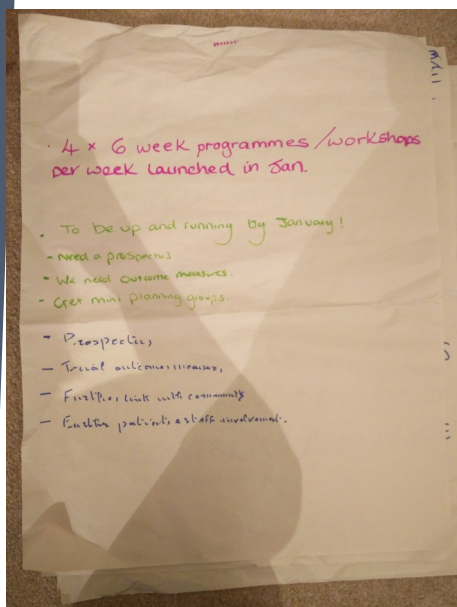 · 4 x 6 week programmes/workshops
per week launched in Jan.
· To be up and running by January!
- Need a prospectus
- We need outcome measures.
- Get mini planning groups.
- Prospectus,
- Trial outcome measures,
- Further link with community
- Further patients & staff involvement.